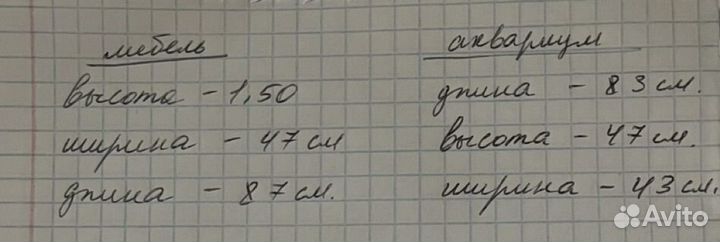 мебель
высота - 1,50
ширина - 47 см
длина - 87 см.
аквариум
длина - 83 см.
высота - 47 см.
ширина - 43 см.
Avito